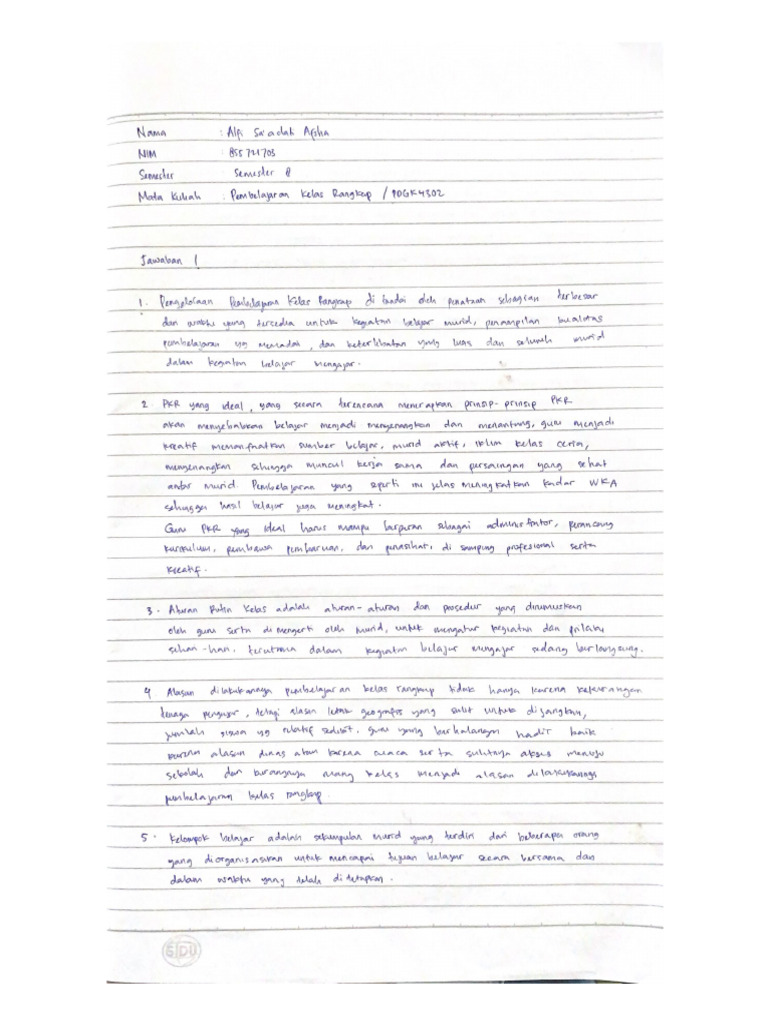 Nama : Alfi Sa'adah Afsha
NIM : 855721703
Semester : Semester 8
Mata Kuliah : Pembelajaran Kelas Rangkap / PDGK4302
Jawaban !
1. Pengelolaan Pembelajaran Kelas Rangkap di tandai oleh penataan sebagian terbesar
dari waktu yang tersedia untuk kegiatan belajar murid, penampilan kualitas
pembelajaran yg memadai, dan keterlibatan yang luas dari seluruh murid
dalam kegiatan belajar mengajar.
2 PKR yang ideal, yang secara terencana menerapkan prinsip-prinsip PKR
akan menyebabkan belajar menjadi menyenangkan dan menantang, guru menjadi
kreatif memanfaatkan sumber belajar, murid aktif, iklim kelas ceria,
menyenangkan sehingga muncul kerja sama dan persaingan yang sehat
antar murid. Pembelajaran yang seperti ini jelas meningkatkan kadar WKA
sehingga hasil belajar juga meningkat.
Guru PKR yang ideal harus mampu berperan sebagai administrator, perancang
kurikulum, pembawa pembaruan, dan penasihat, di samping profesional serta
kreatif.
3. Aturan Rutin Kelas adalah aturan-aturan dan prosedur yang dirumuskan
oleh guru serta di mengerti oleh murid, untuk mengatur kegiatan dan prilaku
sehari-hari, terutama dalam kegiatan belajar mengajar sedang berlangsung.
4 Alasan dilakukannya pembelajaran kelas rangkap tidak hanya karena kekurangan
tenaga pengajar, tetapi alasan letak geografis yang sulit untuk dijangkau,
jumlah siswa yg relatif sedikit, guru yang berhalangan hadir baik
karena alasan dinas atau karena cuaca serta sulitnya akses menuju
sekolah dan kurangnya ruang kelas menjadi alasan dilaksanakannya
pembelajaran kelas rangkap.
5. Kelompok belajar adalah sekumpulan murid yang terdiri dari beberapa orang
yang diorganisasikan untuk mencapai tujuan belajar secara bersama dan
dalam waktu yang telah di tetapkan.
SIDU